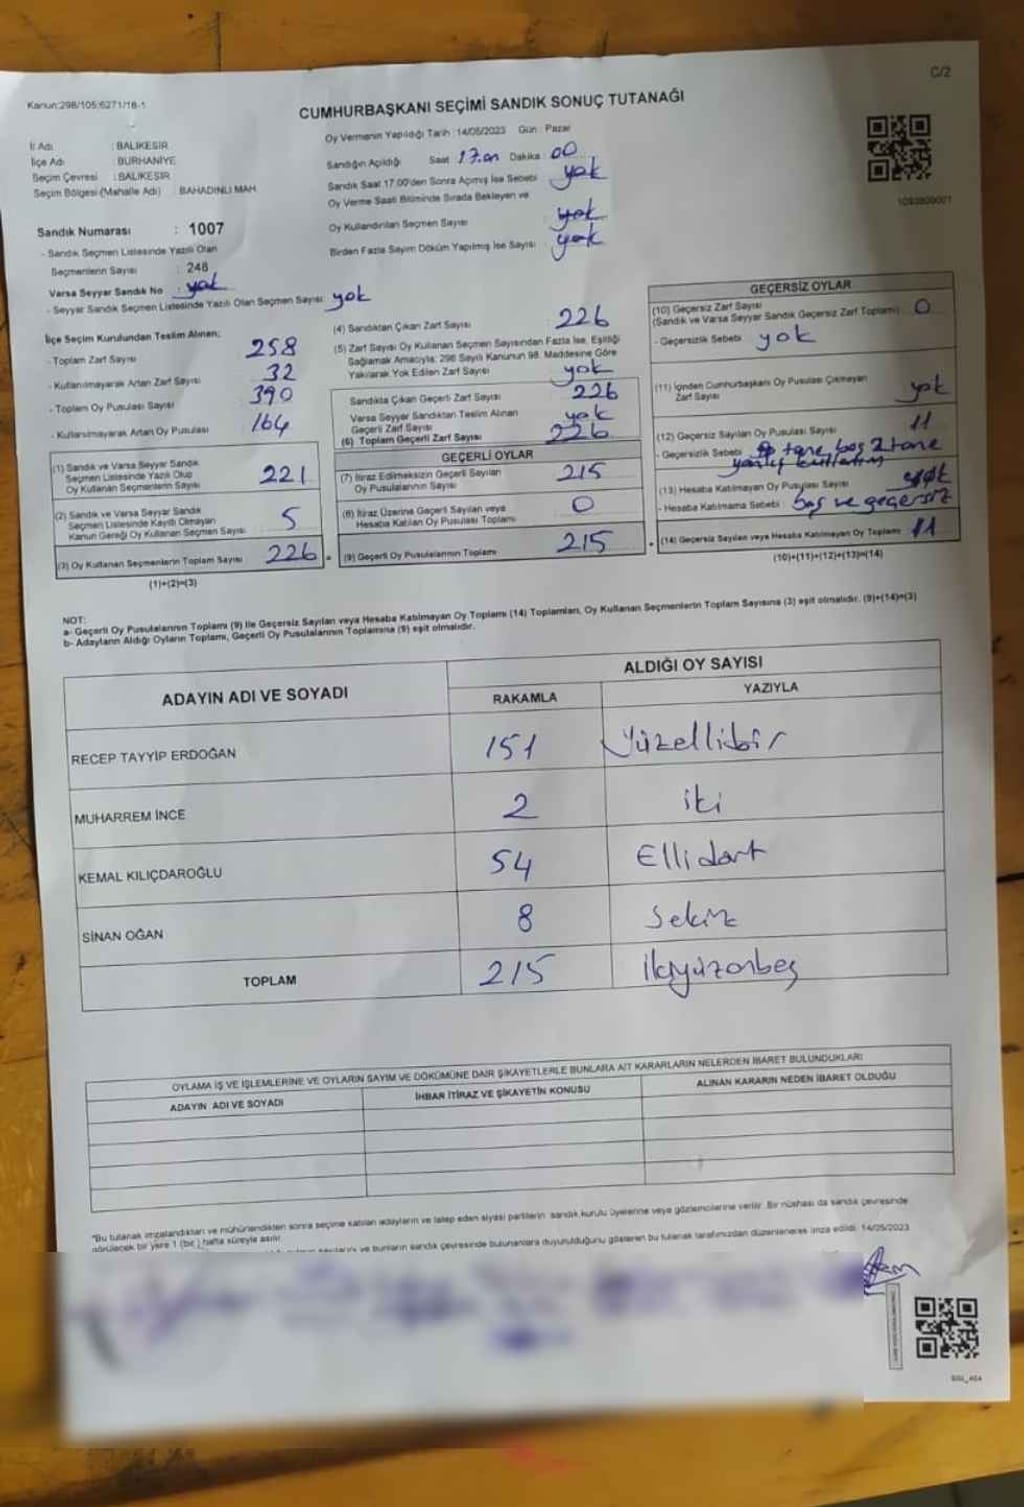 C/2
Kanun:298/105;6271/18-1
CUMHURBAŞKANI SEÇİMİ SANDIK SONUÇ TUTANAĞI
İl Adı : BALIKESİR
İlçe Adı : BURHANİYE
Seçim Çevresi : BALIKESİR
Seçim Bölgesi (Mahalle Adı) : BAHADINLI MAH.
Sandık Numarası : 1007
- Sandık Seçmen Listesinde Yazılı Olan
Seçmenlerin Sayısı : 248
Varsa Seyyar Sandık No : yok
- Seyyar Sandık Seçmen Listesinde Yazılı Olan Seçmen Sayısı: yok
Oy Vermenin Yapıldığı Tarih : 14/05/2023 Gün : Pazar
Sandığın Açıldığı Saat 17.00 Dakika : 00
Sandık Saat 17.00'den Sonra Açılmış İse Sebebi : yok
Oy Verme Saati Bitiminde Sırada Bekleyen ve
Oy Kullandırılan Seçmen Sayısı : yok
Birden Fazla Sayım Döküm Yapılmış İse Sayısı : yok
1093800001
İlçe Seçim Kurulundan Teslim Alınan;
- Toplam Zarf Sayısı 258
- Kullanılmayarak Artan Zarf Sayısı 32
- Toplam Oy Pusulası Sayısı 390
- Kullanılmayarak Artan Oy Pusulası 164
(1) Sandık ve Varsa Seyyar Sandık
Seçmen Listesinde Yazılı Olup
Oy Kullanan Seçmenlerin Sayısı 221
(2) Sandık ve Varsa Seyyar Sandık
Seçmen Listesinde Kayıtlı Olmayan
Kanun Gereği Oy Kullanan Seçmen Sayısı 5
(3) Oy Kullanan Seçmenlerin Toplam Sayısı 226 =
(1)+(2)=(3)
(4) Sandıktan Çıkan Zarf Sayısı 226
(5) Zarf Sayısı Oy Kullanan Seçmen Sayısından Fazla İse, Eşitliği
Sağlamak Amacıyla; 298 Sayılı Kanunun 98. Maddesine Göre
Yakılarak Yok Edilen Zarf Sayısı yok
Sandıkta Çıkan Geçerli Zarf Sayısı 226
Varsa Seyyar Sandıktan Teslim Alınan
Geçerli Zarf Sayısı yok
(6) Toplam Geçerli Zarf Sayısı 226
GEÇERLİ OYLAR
(7) İtiraz Edilmeksizin Geçerli Sayılan
Oy Pusulalarının Sayısı 215
(8) İtiraz Üzerine Geçerli Sayılan veya
Hesaba Katılan Oy Pusulası Toplamı 0
(9) Geçerli Oy Pusulalarının Toplamı 215
GEÇERSİZ OYLAR
(10) Geçersiz Zarf Sayısı
(Sandık ve Varsa Seyyar Sandık Geçersiz Zarf Toplamı) 0
- Geçersizlik Sebebi yok
(11) İçinden Cumhurbaşkanı Oy Pusulası Çıkmayan
Zarf Sayısı yok
(12) Geçersiz Sayılan Oy Pusulası Sayısı 11
- Geçersizlik Sebebi tane boş 2 tane
yanlış kullanım
(13) Hesaba Katılmayan Oy Pusulası Sayısı
- Hesaba Katılmama Sebebi boş ve geçersiz
(14) Geçersiz Sayılan veya Hesaba Katılmayan Oy Toplamı 11
(10)+(11)+(12)+(13)=(14)
NOT:
a- Geçerli Oy Pusulalarının Toplamı (9) ile Geçersiz Sayılan veya Hesaba Katılmayan Oy Toplamı (14) Toplamları, Oy Kullanan Seçmenlerin Toplam Sayısına (3) eşit olmalıdır. (9)+(14)=(3)
b- Adayların Aldığı Oyların Toplamı, Geçerli Oy Pusulalarının Toplamına (9) eşit olmalıdır.
ADAYIN ADI VE SOYADI
ALDIĞI OY SAYISI
RAKAMLA YAZIYLA
RECEP TAYYİP ERDOĞAN 151 Yüzellibir
MUHARREM İNCE 2 iki
KEMAL KILIÇDAROĞLU 54 Ellidört
SİNAN OĞAN 8 Sekiz
TOPLAM 215 ikiyüzonbeş
OYLAMA İŞ VE İŞLEMLERİNE VE OYLARIN SAYIM VE DÖKÜMÜNE DAİR ŞİKAYETLERLE BUNLARA AİT KARARLARIN NELERDEN İBARET BULUNDUKLARI
ADAYIN ADI VE SOYADI İHBAR İTİRAZ VE ŞİKAYETİN KONUSU ALINAN KARARIN NEDEN İBARET OLDUĞU
"Bu tutanak imzalandıktan ve mühürlendikten sonra seçime katılan adayların ve talep eden siyasi partilerin sandık kurulu üyelerine veya gözlemcilerine verilir. Bir nüshası da sandık çevresinde
görülecek bir yere 1 (bir) hafta süreyle asılır.
ve bunların sandık çevresinde bulunanlara duyurulduğunu gösteren bu tutanak tarafımızdan düzenlenerek imza edildi. 14/05/2023